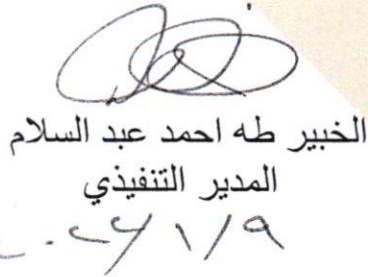 الخبير طه احمد عبد السلام
المدير التنفيذي
٢٠٢٦/١/٩